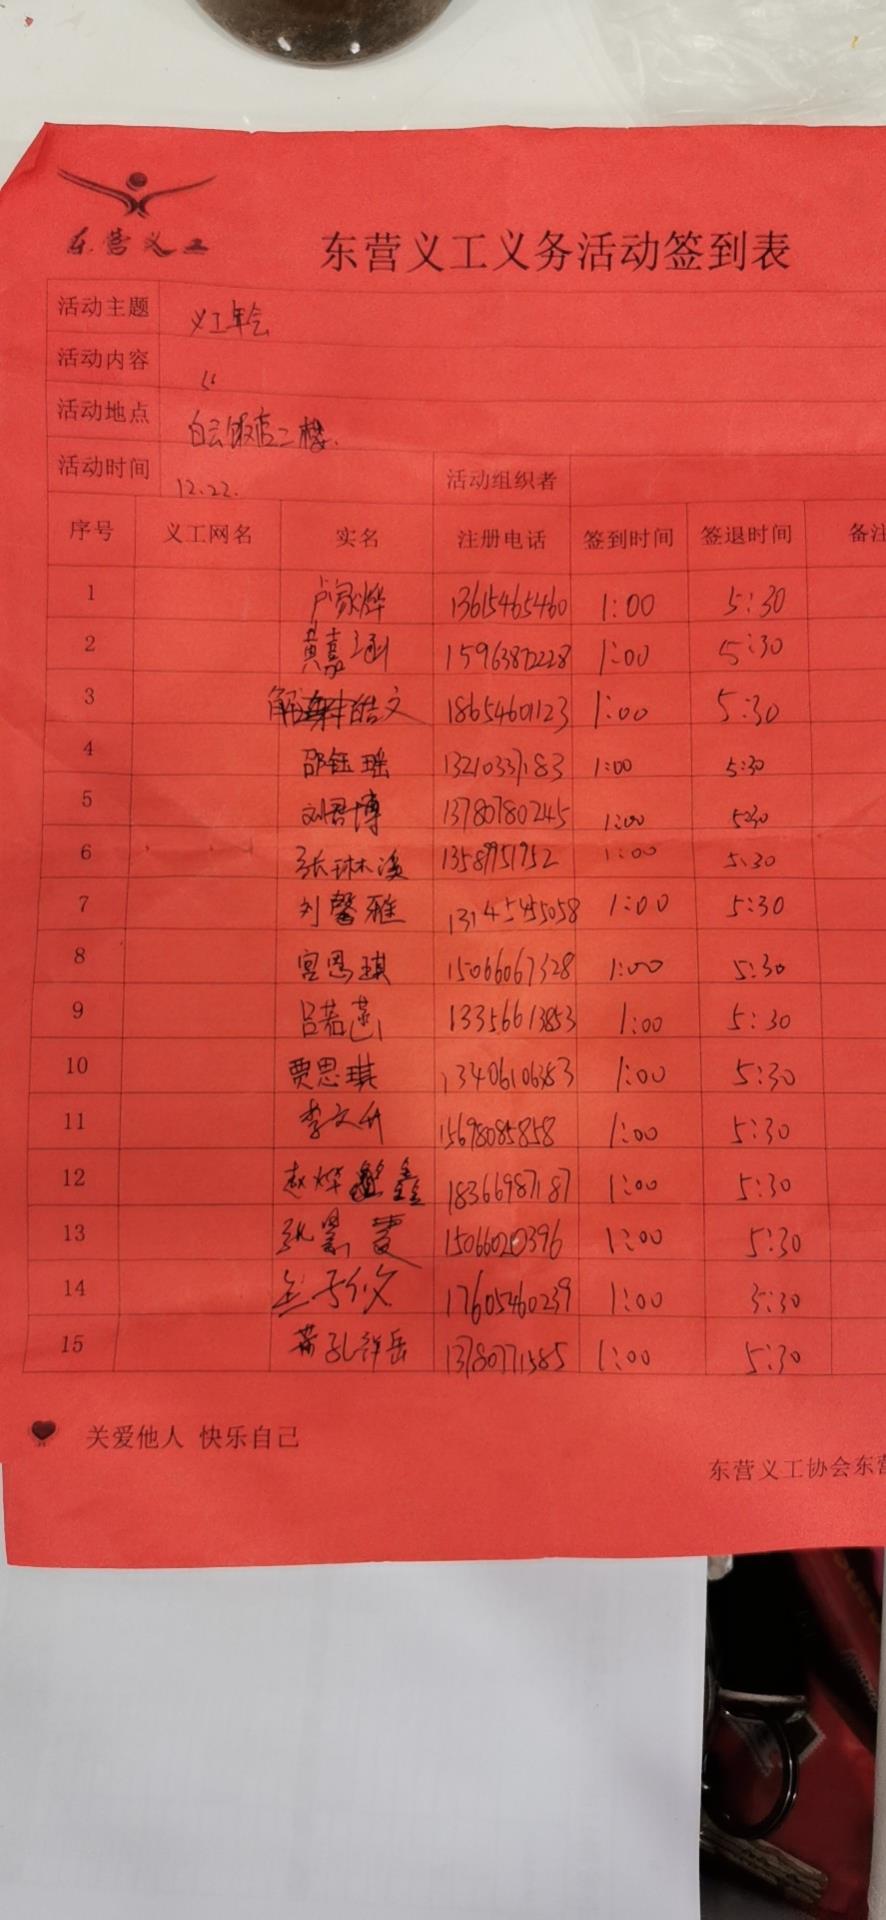 东营义工
东营义工义务活动签到表
活动主题 义工年会
活动内容 "
活动地点 白云饭店二楼.
活动时间 12.22. 活动组织者
序号 义工网名 实名 注册电话 签到时间 签退时间 备注
1 卢家烨 13615465460 1:00 5:30
2 黄嘉涵 15963872228 1:00 5:30
3 解皓文 18654601123 1:00 5:30
4 邵钰瑶 13210337183 1:00 5:30
5 刘君博 13780780245 1:00 5:30
6 张琳溪 1358951952 1:00 5:30
7 刘馨雅 1:00 5:30
8 宫恩琪 15066067328 1:00 5:30
9 吕若菡 13356613853 1:00 5:30
10 贾思琪 13406106383 1:00 5:30
11 李文升 15698085858 1:00 5:30
12 赵烨鑫 18366987187 1:00 5:30
13 15066020396 1:00 5:30
14 17605460239 1:00 5:30
15 孔祥岳 13780771585 1:00 5:30
关爱他人 快乐自己
东营义工协会东营